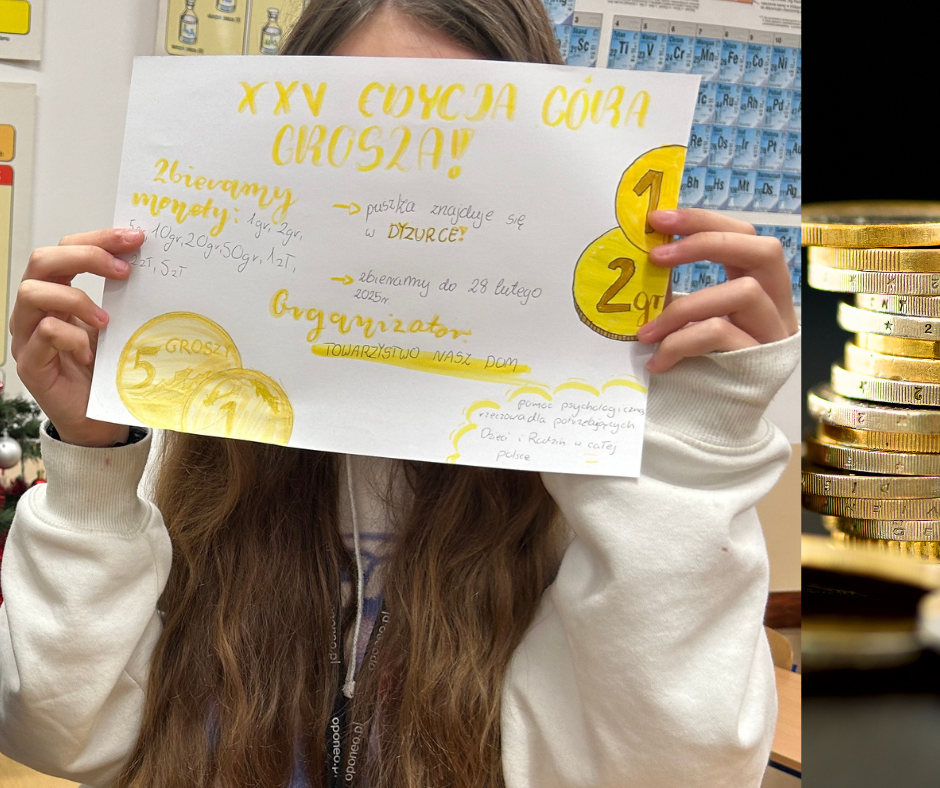 XXV EDYCJA GÓRA
GROSZA!!
Zbieramy
monety: 1gr, 2gr,
5gr, 10gr, 20gr, 50gr, 1zł,
2zł, 5zł
→ puszka znajduje się
w DYŻURCE!
→ zbieramy do 28 lutego
2025r
Organizator:
TOWARZYSTWO NASZ DOM
pomoc psychologiczna
rzeczowa dla potrzebujących
Dzieci i Rodzin w całej
polsce
1
2gr
5 GROSZY
1
Sc
Ti V Cr Mn Fe Co Ni
Tc Ru Rh Pd
Re Os Ir Pt
Bh Hs Mt Ds Rg
Gd
U Np
oponeo.pl
oponeo.pl